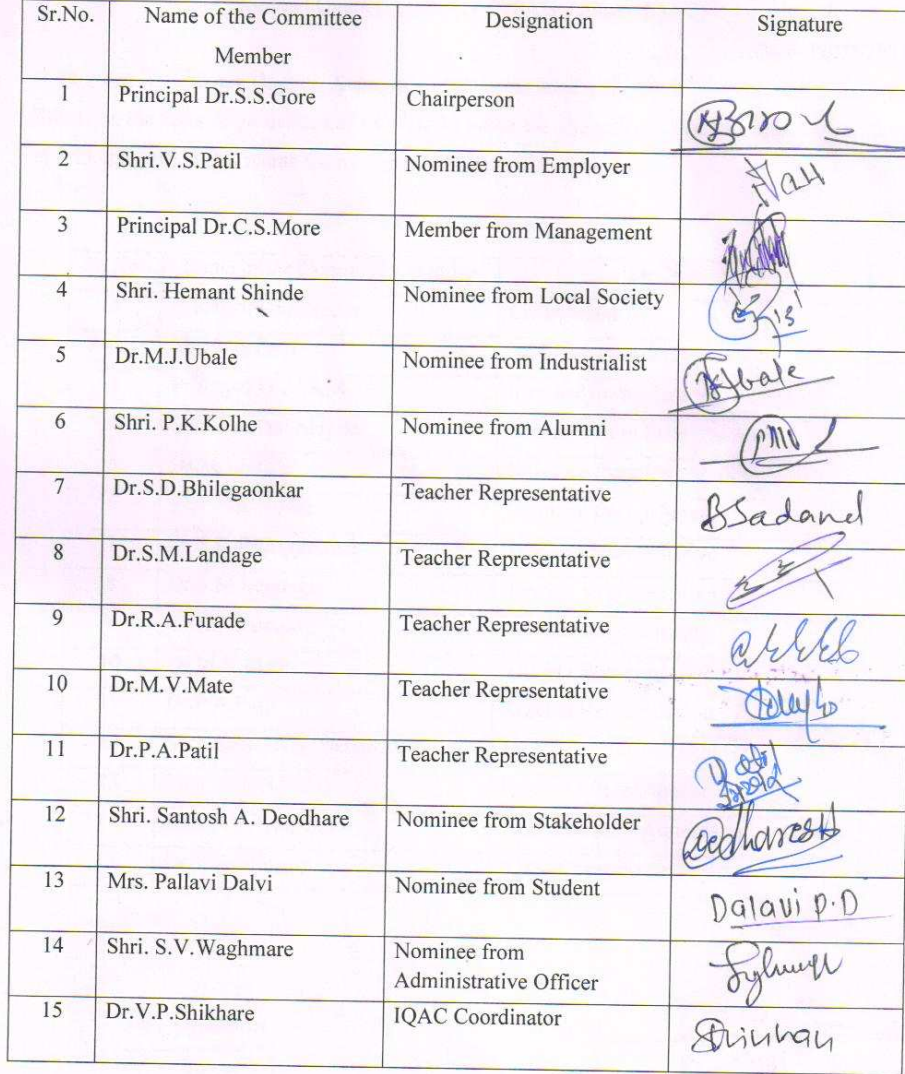 Sr.No. Name of the Committee Member Designation Signature
1 Principal Dr.S.S.Gore Chairperson
2 Shri.V.S.Patil Nominee from Employer
3 Principal Dr.C.S.More Member from Management
4 Shri. Hemant Shinde Nominee from Local Society
5 Dr.M.J.Ubale Nominee from Industrialist
6 Shri. P.K.Kolhe Nominee from Alumni
7 Dr.S.D.Bhilegaonkar Teacher Representative BSadand
8 Dr.S.M.Landage Teacher Representative
9 Dr.R.A.Furade Teacher Representative
10 Dr.M.V.Mate Teacher Representative
11 Dr.P.A.Patil Teacher Representative
12 Shri. Santosh A. Deodhare Nominee from Stakeholder
13 Mrs. Pallavi Dalvi Nominee from Student Dalavi P.D
14 Shri. S.V.Waghmare Nominee from
Administrative Officer
15 Dr.V.P.Shikhare IQAC Coordinator